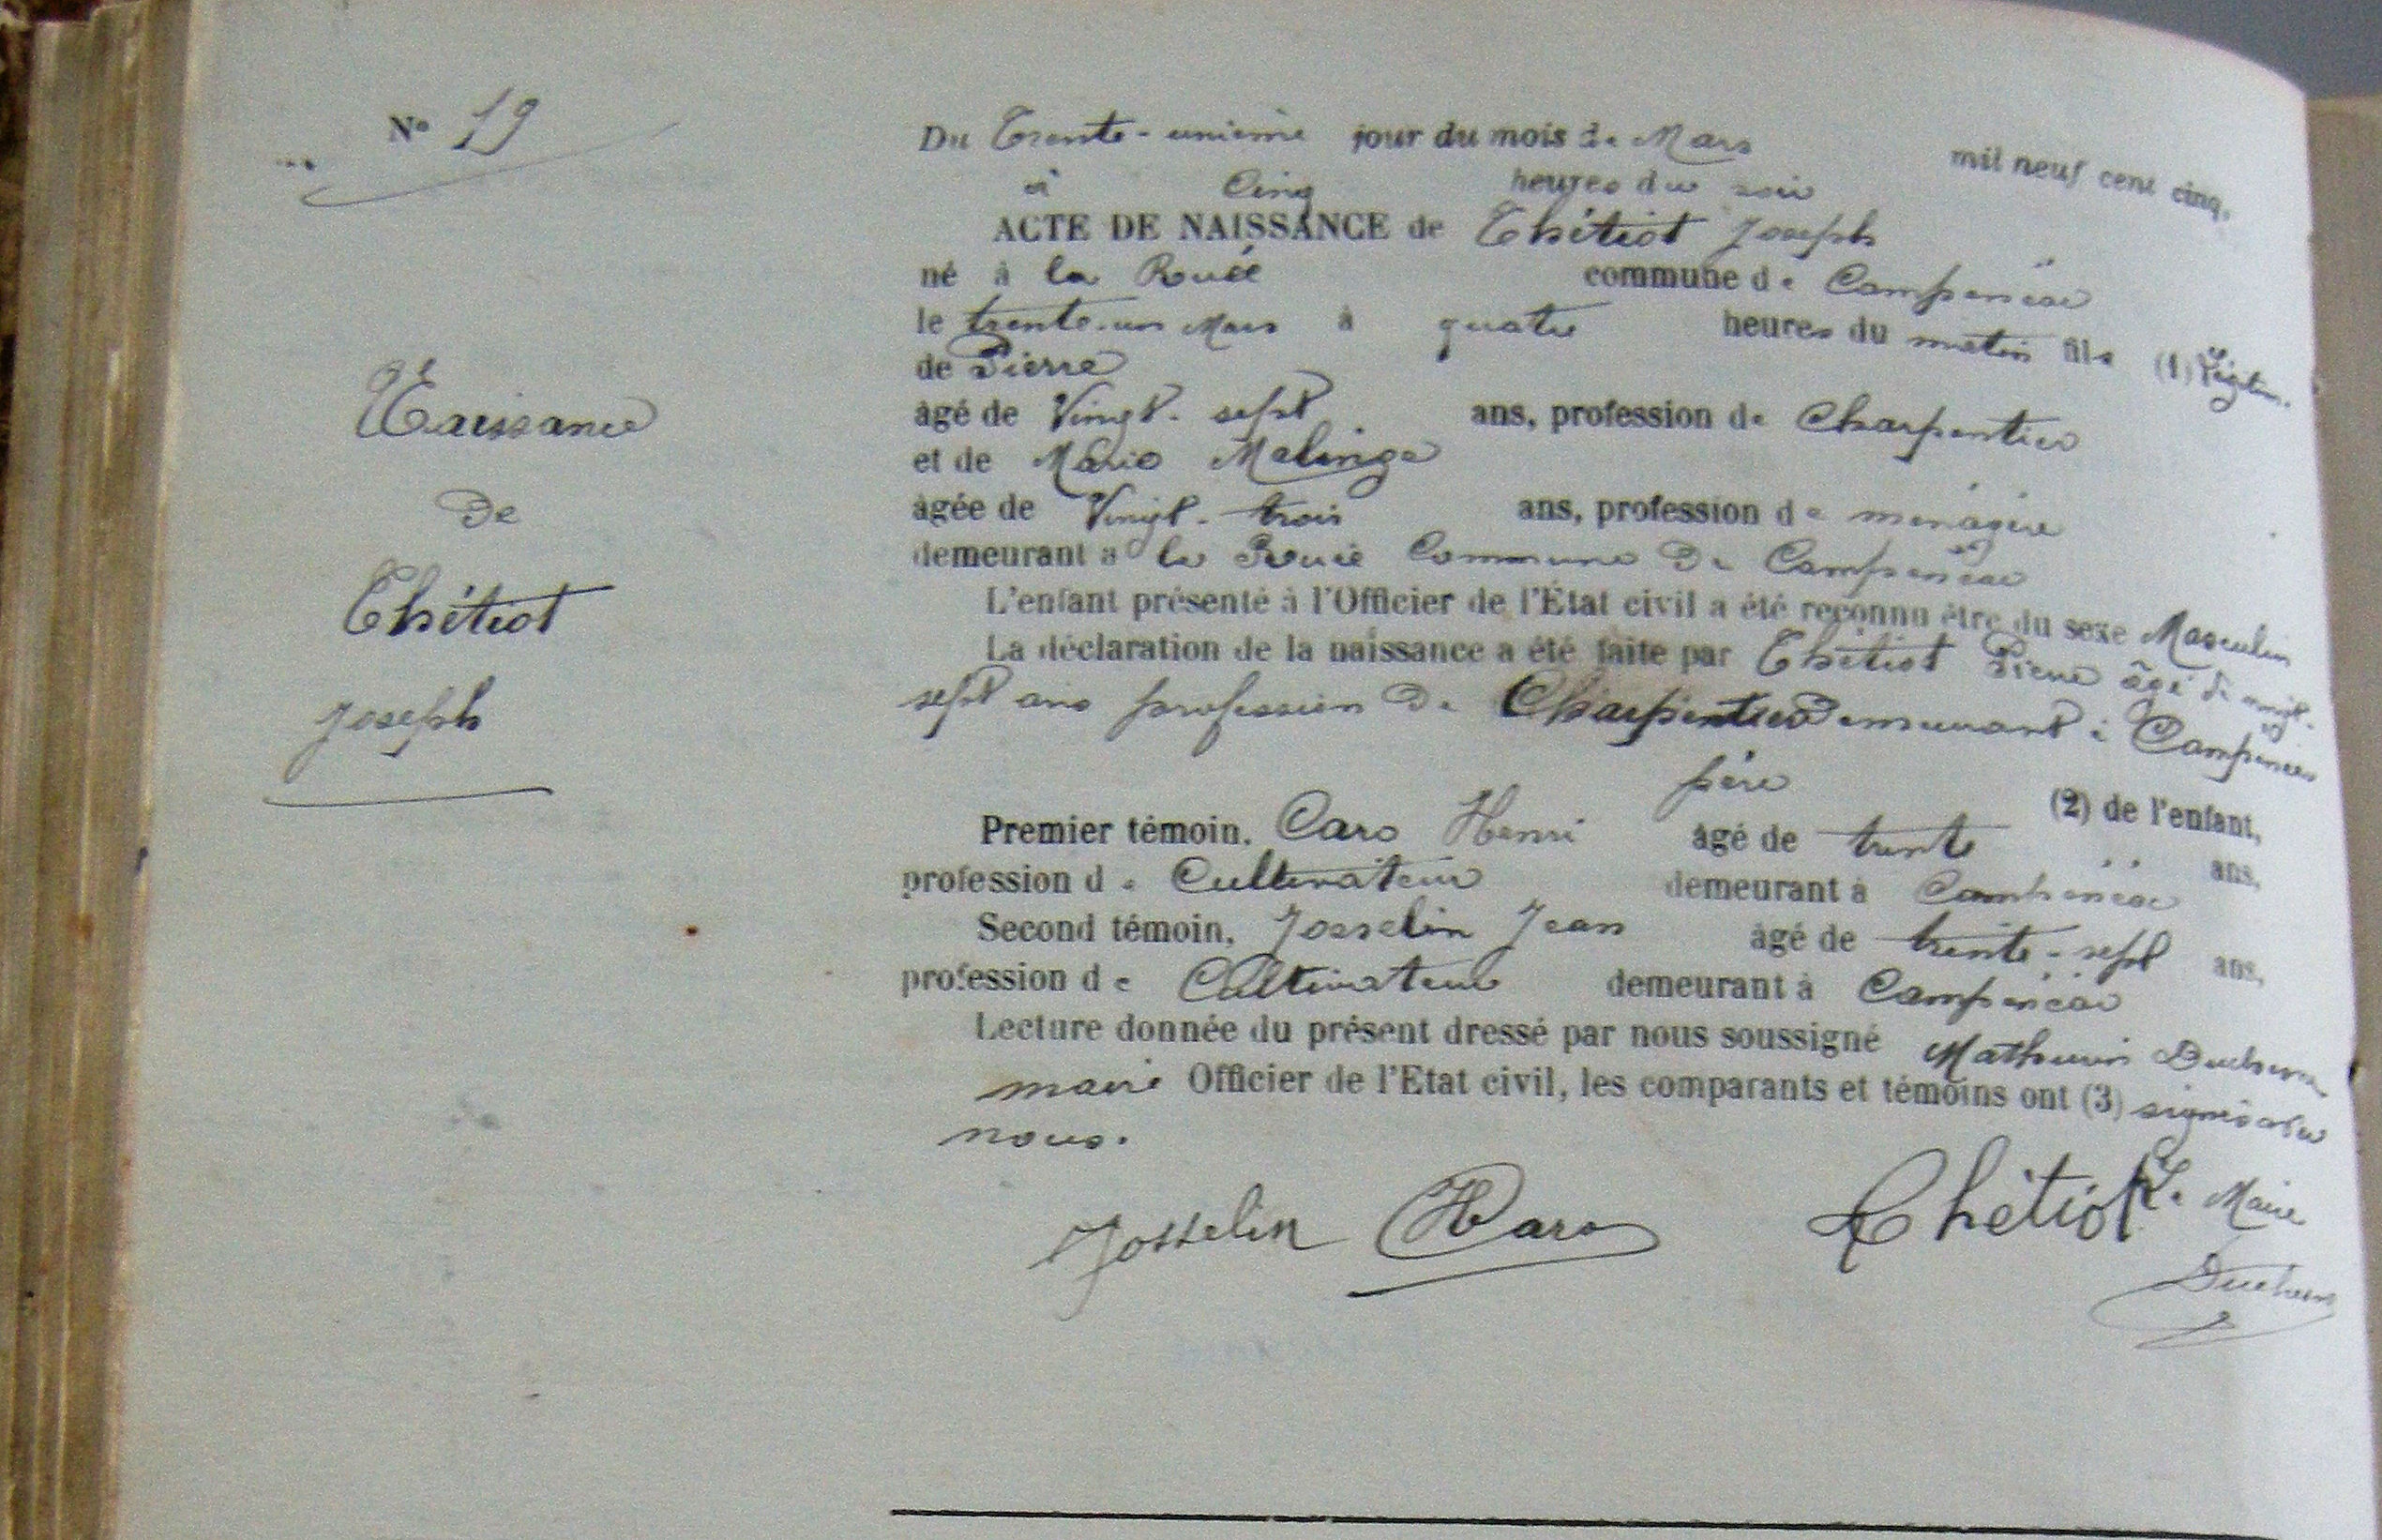 N° 19
Naissance
de
Thétiot
Joseph
Du Trente-unième jour du mois de Mars mil neuf cent cinq,
à Cinq heures du soir
ACTE DE NAISSANCE de Thétiot Joseph
né à la Ruée commune de Campénéac
le trente-un Mars à quatre heures du matin fils (1) Légitim.
de Pierre
âgé de Vingt-sept ans, profession de Charpentier
et de Marie Malinge
âgée de Vingt-trois ans, profession de ménagère
demeurant à la Ruée Commune de Campénéac
L'enfant présenté à l'Officier de l'État civil a été reconnu être du sexe Masculin
La déclaration de la naissance a été faite par Thétiot Pierre âgé de vingt-
sept ans profession de Charpentier demeurant à Campénéac
père (2) de l'enfant,
Premier témoin, Caro Henri âgé de trente ans,
profession de Cultivateur demeurant à Campénéac
Second témoin, Josselin Jean âgé de trente-sept ans,
profession de Cultivateur demeurant à Campénéac
Lecture donnée du présent dressé par nous soussigné Mathurin
maire Officier de l'Etat civil, les comparants et témoins ont (3) signé avec
nous.
Josselin HCaro Thétiot Le Maire